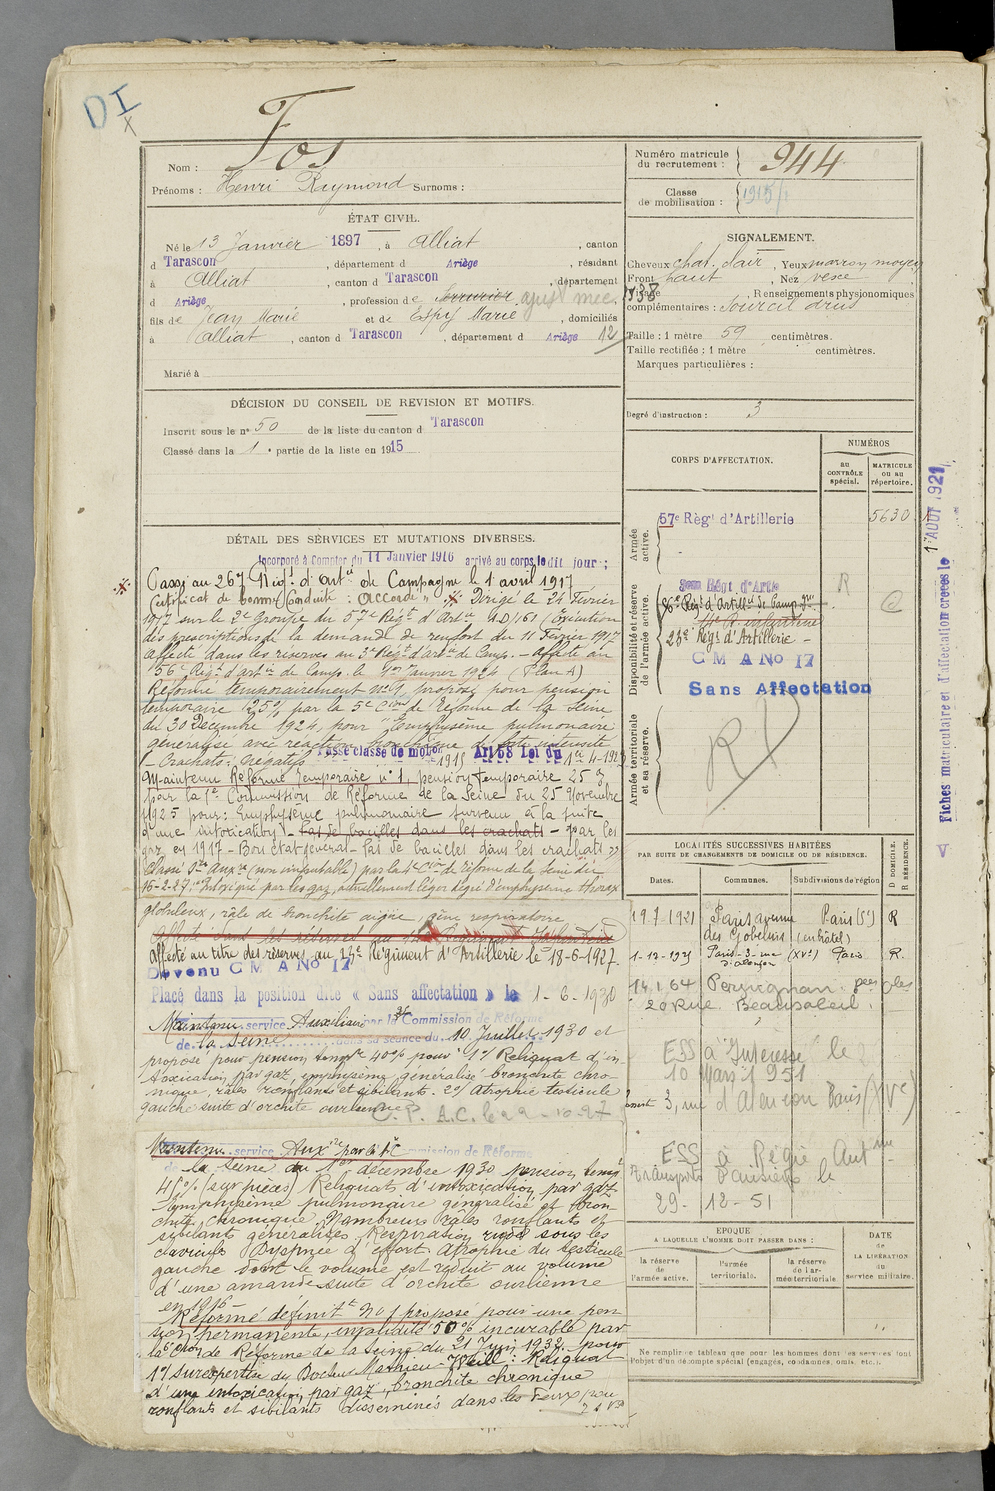 DI
x
Nom : Fos
Prénoms : Henri Raymond Surnoms :
ÉTAT CIVIL.
Né le 13 Janvier 1897, à Alliat, canton
d Tarascon, département d Ariège, résidant
à Alliat, canton d Tarascon, département
d Ariège, profession de Serrurier ajust mec.
fils de Jean Marie et de Espy Marie, domiciliés
à Alliat, canton d Tarascon, département d Ariège 12
Marié à
DÉCISION DU CONSEIL DE REVISION ET MOTIFS.
Inscrit sous le n° 50 de la liste du canton d Tarascon
Classé dans la 1e partie de la liste en 1915
DÉTAIL DES SERVICES ET MUTATIONS DIVERSES.
Incorporé à Compter du 11 Janvier 1916 arrivé au corps le dit jour ;
Passé au 267 Rég.t d'art.ie de Campagne le 1 avril 1917
Certificat de bonne Conduite : "Accordé" Dirigé le 24 Février
1917 sur le 2e Groupe du 57e Régt d'Artie AD/161 (Exécution
des prescriptions de la demande de renfort du 11 Février 1917
Affecté dans les réserves au 3e Régt d'artie de Camp. - Affecté au
56e Régt d'artie de Camp. le 1er Janvier 1924 (Plan A)
Réformé temporairement n°1, proposé pour pension
temporaire 25% par la 5e Cion de Réforme de la Seine
du 30 Décembre 1924, pour "Emphysème pulmonaire
généralisé avec réaction bronchique
- Crachats : négatifs Passé classe de mobon 1915 Art 58 Loi du 1er-4-1923
Maintenu Réforme temporaire n°1, pension temporaire 25%
par la 1e Commission de Réforme de la Seine du 25 Novembre
1925 pour : Emphysème pulmonaire survenu à la suite
d'une intoxication - Pas de bacilles dans les crachats - par les
gaz en 1917 - Bon état général - Pas de bacilles dans les crachats »
Classé Sce Auxre (non imputable) par la 1e Cion de réforme de la Seine du
16-2-27 : "Intoxiqué par les gaz, actuellement léger degré d'emphysème thorax
globuleux, râle de bronchite aigüe, gêne respiratoire
Affecté dans les réserves au Régiment
Affecté au titre des réserves au 25e Régiment d'Artillerie le 18-6-1927.
Devenu C M A No 17
Placé dans la position dite « Sans affectation » le 1-6-1930
Maintenu service Auxiliaire par la 3e Commission de Réforme
de la Seine dans sa séance du 10 Juillet 1930 et
proposé pour pension tempre 40% pour 1°/ Reliquat d'in
toxication par gaz, emphysème généralisé bronchite chro-
nique, râles ronflants et sibilants. 2°/ atrophie testicule
gauche suite d'orchite ourlienne
Maintenu service Auxre par la 1e Commission de Réforme
de la Seine du 1er décembre 1930 pension tempre
45% (sur pièces) Reliquats d'intoxication par gaz
Emphysème pulmonaire généralisé et bron
chite chronique. Nombreux râles ronflants et
sibilants généralisés. Respiration rude sous les
clavicules. Dyspnée d'effort. Atrophie du testicule
gauche dont le volume est réduit au volume
d'une amande suite d'orchite ourlienne
en 1916 -
Réformé définitt No 1 proposé pour une pen
sion permanente, invalidité 50% incurable par
la 6e Cion de Réforme de la Seine du 21 Juin 1932, pour
1°/ surexpertise du Docteur Mathieu-Weill : Reliquat
d'une intoxication par gaz, bronchite chronique
ronflants et sibilants disséminés dans les
Numéro matricule
du recrutement : 944
Classe
de mobilisation : 1915
SIGNALEMENT.
Cheveux chat. clair, Yeux marron moyen
Front haut, Nez vexe
Visage, Renseignements physionomiques
complémentaires : Sourcil drus
Taille : 1 mètre 59 centimètres.
Taille rectifiée : 1 mètre centimètres.
Marques particulières :
Degré d'instruction : 3
CORPS D'AFFECTATION.
NUMÉROS
au
CONTRÔLE
spécial.
MATRICULE
ou au
répertoire.
Armée
active.
57e Régt d'Artillerie
5630
Disponibilité et réserve
de l'armée active.
56e Régt d'Artillie de Camp.gne
25e Régt d'Artillerie -
C M A No 17
Sans Affectation
R
Armée territoriale
et sa réserve.
Fiches matriculaire et d'affectation créées le 1 AOUT 1921
LOCALITÉS SUCCESSIVES HABITÉES
PAR SUITE DE CHANGEMENTS DE DOMICILE OU DE RÉSIDENCE.
Dates.
Communes.
Subdivisions de région
D DOMICILE.
R RÉSIDENCE.
19-7-1921 Paris avenue Paris (Sn) R
des Gobelins (en hôtel)
1-12-1925 Paris - 3 - rue (XVe) Paris R.
d'alençon
14.1.64 Perpignan
20 Rue Beausoleil
ESS à Interesse le
10 Mars 1951
3, rue d'Alençon Paris (XVe)
ESS à Régie Autme
Transports Parisiens le
29-12-51
EPOQUE
A LAQUELLE L'HOMME DOIT PASSER DANS :
la réserve
de
l'armée active.
l'armée
territoriale.
la réserve
de l'ar-
mée territoriale.
DATE
de
LA LIBÉRATION
du
service militaire.
Ne remplir ce tableau que pour les hommes dont les services font
l'objet d'un décompte spécial (engagés, condamnés, omis, etc.).